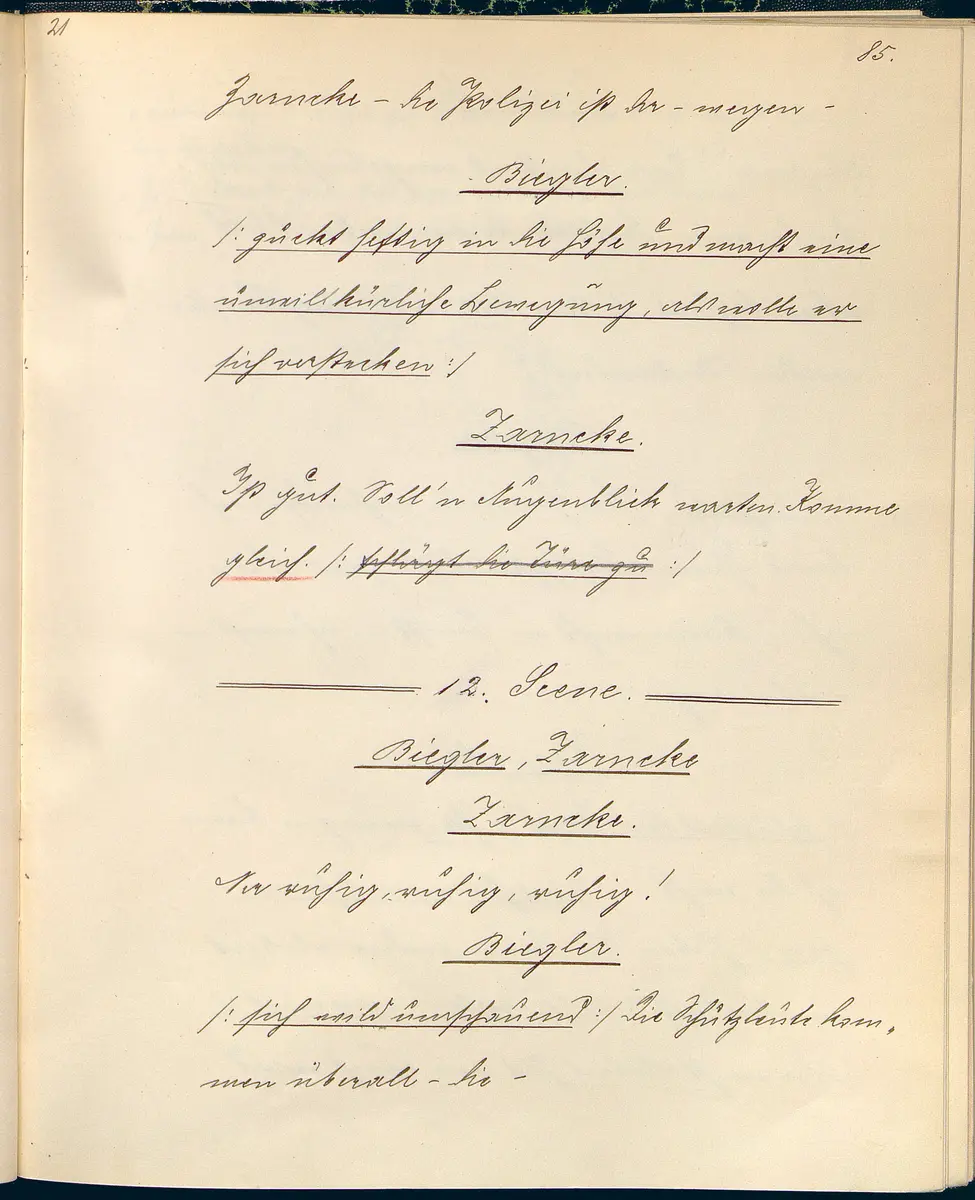 21
85.
Zarncke – die Polizei ist da – wegen –
Biegler.
/: zuckt heftig in die Höhe und macht eine
unwillkürliche Bewegung, als wolle er
sich verstecken :/
Zarncke.
Ist gut. Soll'n Augenblick warten. Komme
gleich. /: schlägt die Türe zu :/
12. Scene.
Biegler, Zarncke
Zarncke.
Na ruhig, ruhig, ruhig!
Biegler.
/: sich wild umschauend :/ Die Schutzleute kom„
men überall – die –